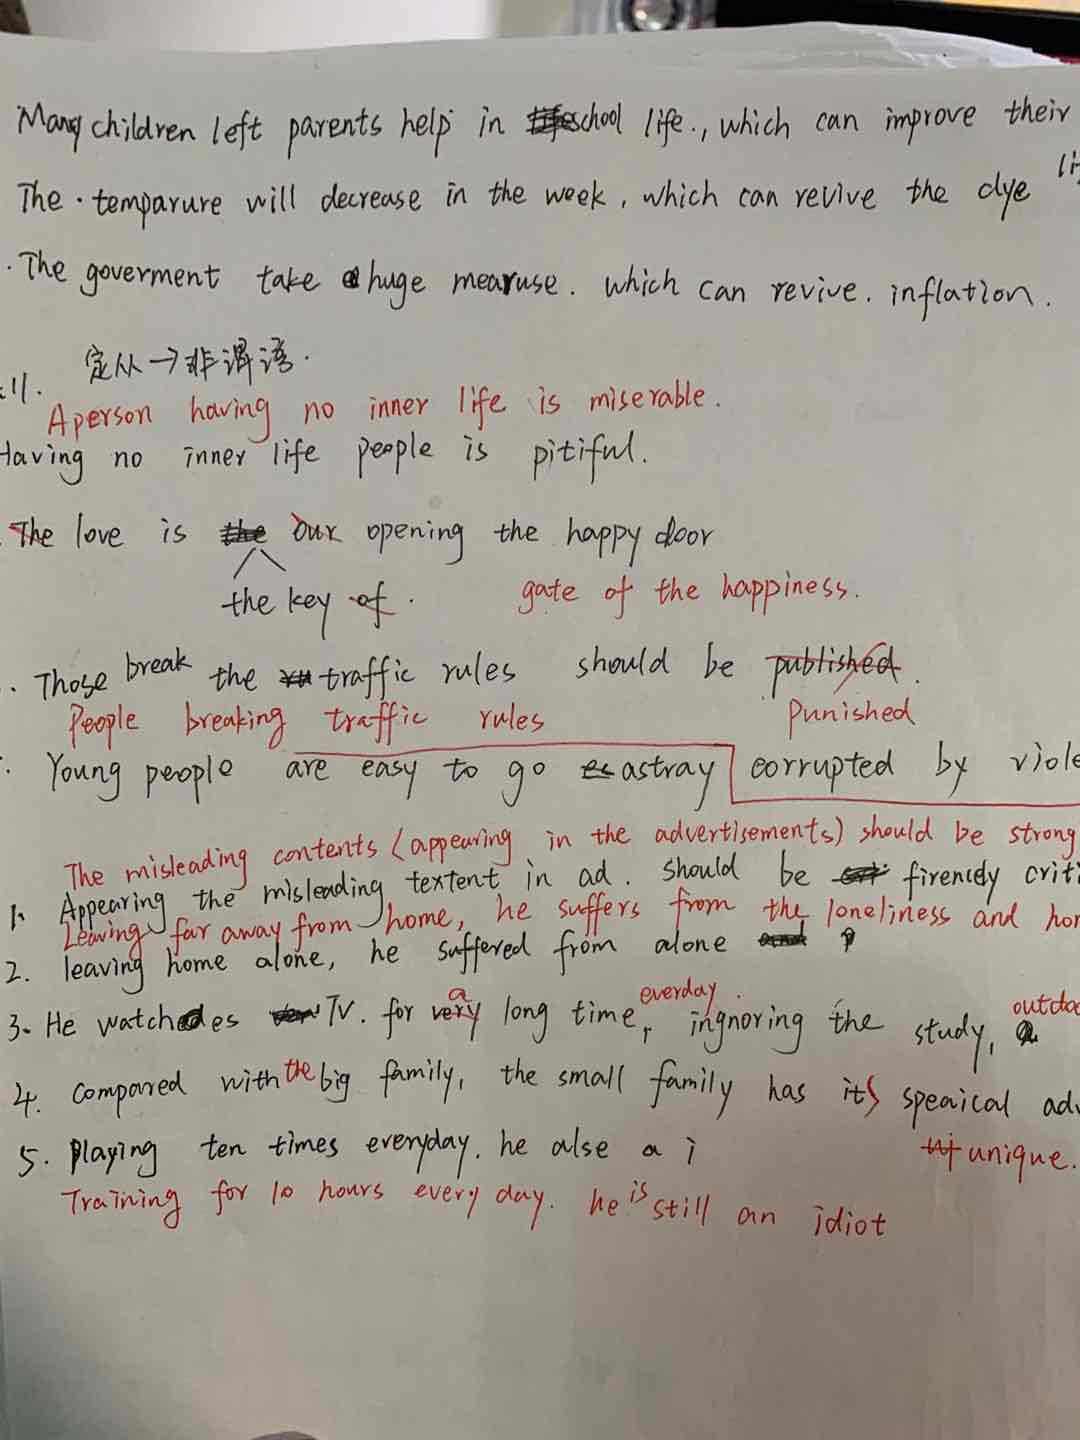 Many children left parents help in school life., which can improve their
The temparure will decrease in the week, which can revive the dye
The goverment take a huge mearuse. which can revive. inflation.
定从→非谓语.
A person having no inner life is miserable.
Having no inner life people is pitiful.
The love is the our opening the happy door
the key of. gate of the happiness.
Those break the traffic rules should be published.
People breaking traffic rules Punished
Young people are easy to go astray corrupted by viole
The misleading contents (appearing in the advertisements) should be strong
1. Appearing the misleading textent in ad. should be firendy criti
Leaving far away from home, he suffers from the loneliness and hor
2. leaving home alone, he suffered from alone and
a everday. outdoo
3. He watches TV. for very long time, ingnoring the study,
4. Compared with the big family, the small family has its speaical adv
unique.
5. Playing ten times everyday. he alse a i
Training for 10 hours every day. he is still an idiot